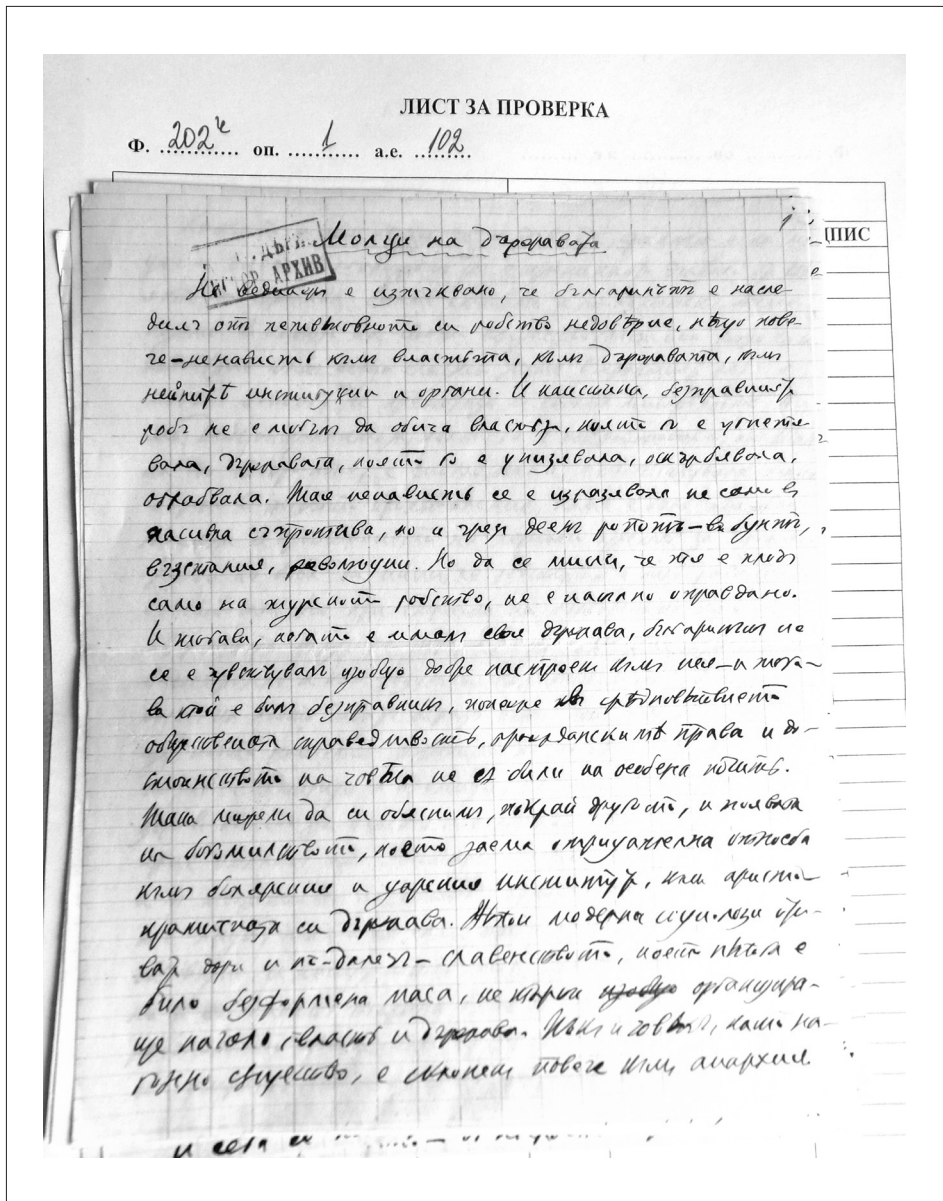 ЛИСТ ЗА ПРОВЕРКА
Ф. 202к оп. 1 а.е. 102
ПИС
1
ДЪРЖ. АРХИВ
Молци на държавата
Не веднажъ е изтъквано, че българинътъ е насле-
дилъ отъ петвѣковното си робство недовѣрие, нѣщо пове-
че – ненависть къмъ властьта, къмъ държавата, къмъ
нейнитѣ институции и органи. И наистина, безправниятъ
робъ не е можълъ да обича властьта, която го е угнетя-
вала, държавата, която го е унизявала, оскърбявала,
ограбвала. Тая ненависть се е изразявала не само въ
пасивна съпротива, но и чрезъ деенъ ропотъ – въ бунтъ,
възстания, революции. Но да се мисли, че тя е плодъ
само на турското робство, не е напълно оправдано.
И тогава, когато е ималъ своя държава, българинътъ не
се е чувствувалъ изобщо добре настроенъ къмъ нея – и тога-
ва той е билъ безправникъ, понеже въ срѣдновѣковието
обществената справедливость, гражданскитѣ права и до-
стоинството на човѣка не сѫ били на особена почить.
Така можемъ да си обяснимъ, покрай другото, и появата
на богомилството, което заема отрицателна
къмъ болярския и царския институтъ, към аристо-
кратическата си държава. Нѣкои модерни социолози оти-
ватъ дори и по-далечъ – славянството, което нѣкога е
било безформена маса, не търпи изобщо организира-
що начало, власть и държава. човѣкъ, като
същество, е склоненъ повече към анархия
и сега си